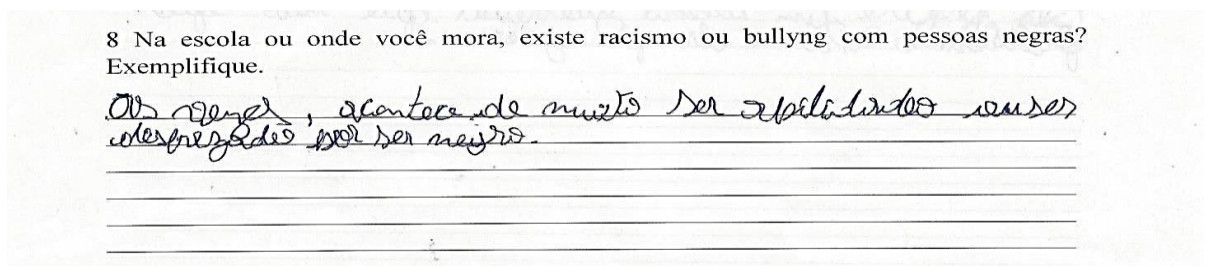 8 Na escola ou onde você mora, existe racismo ou bullyng com pessoas negras?
Exemplifique.
As vezes, acontece de muito ser apilidados ou ser
desprezados por ser negro.